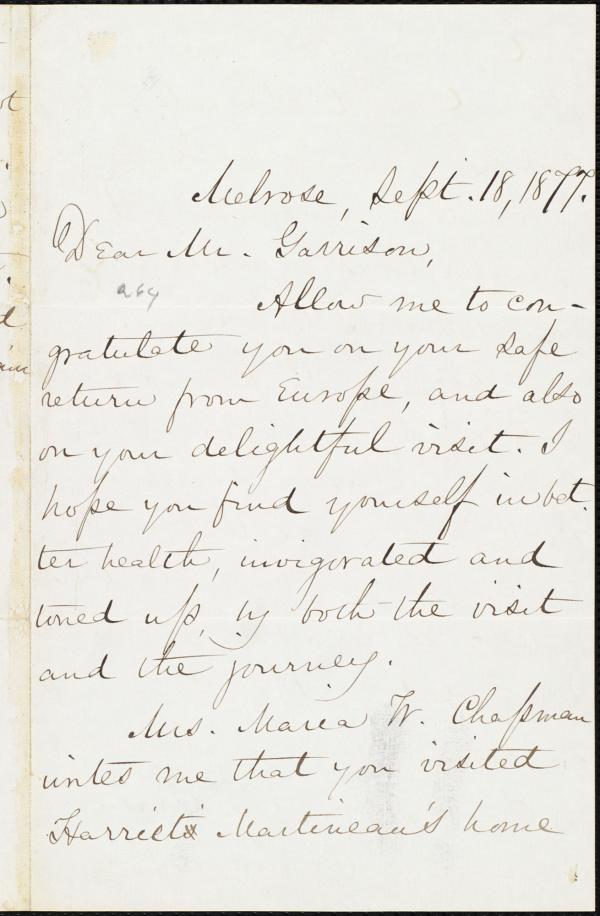 Melrose, Sept. 18, 1877.
Dear Mr. Garrison,
Allow me to con-
gratulate you on your safe
return from Europe, and also
on your delightful visit. I
hope you find yourself in bet-
ter health, invigorated and
toned up, by both the visit
and the journey.
Mrs. Maria W. Chapman
writes me that you visited
Harriet Martineau's home